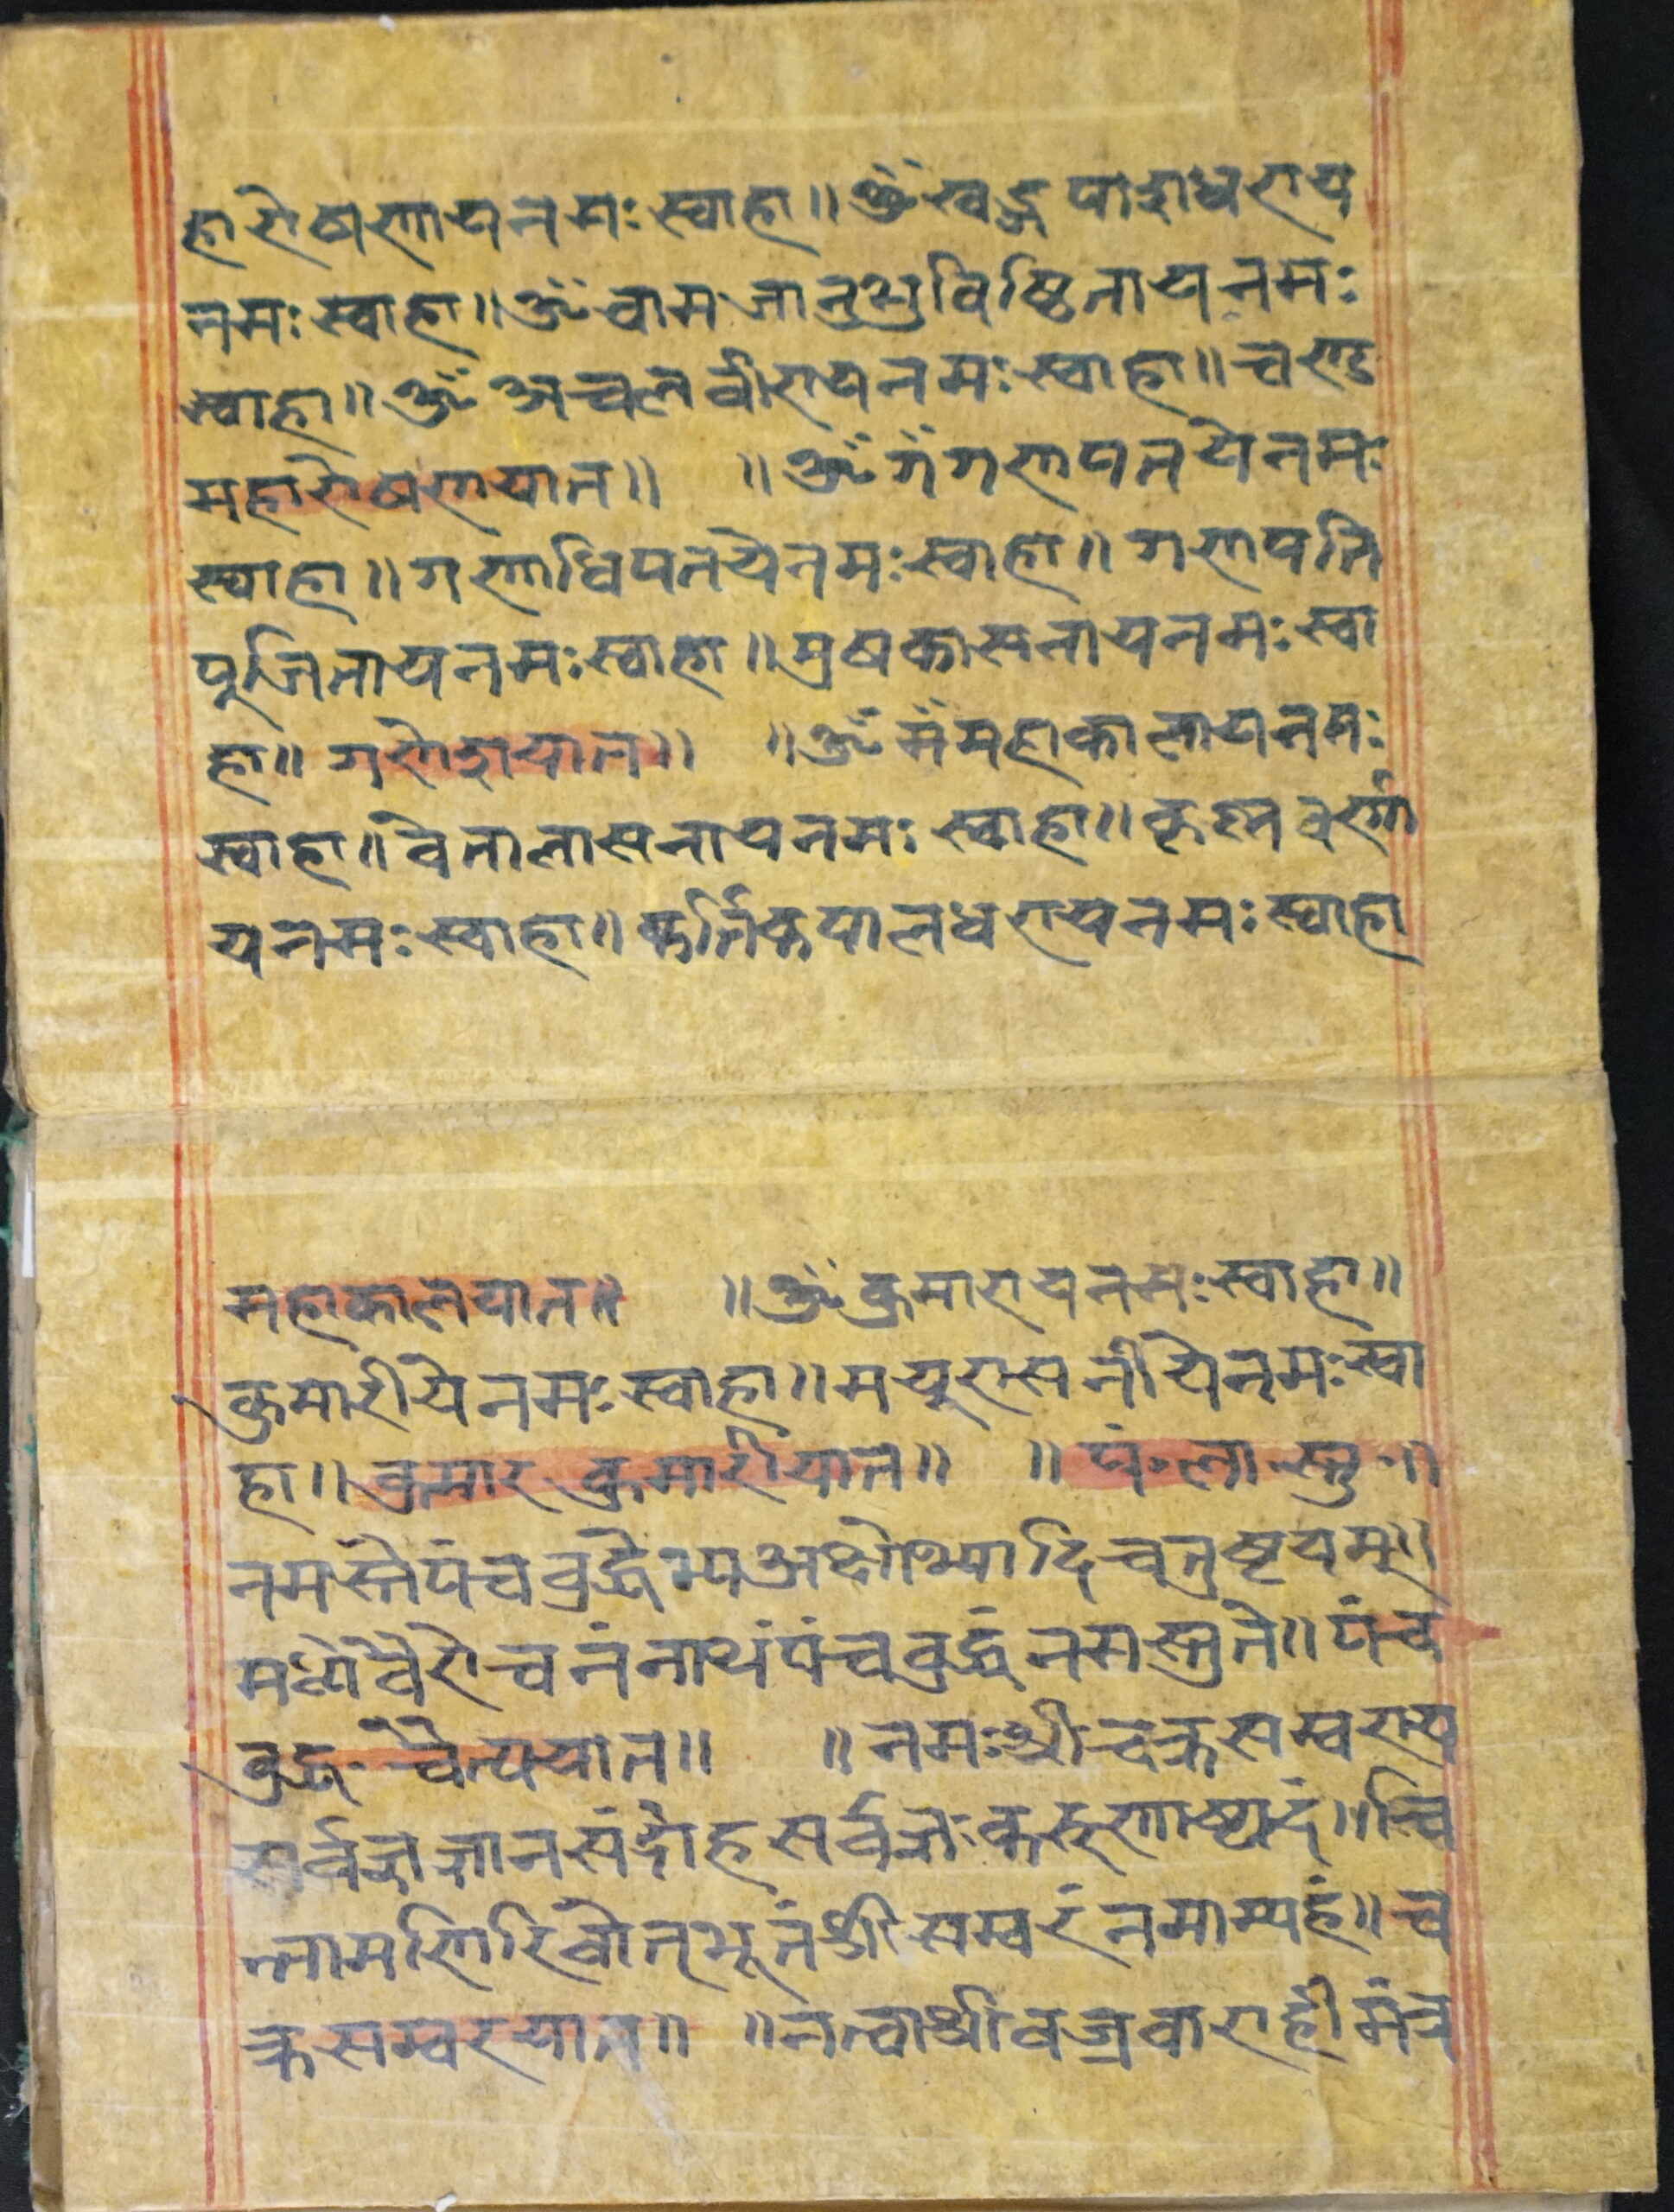 हारोषणायनमः स्वाहा॥ ॐ खड्गपाशधराय
नमः स्वाहा॥ ॐ वामजानुभुविष्ठितायनमः
स्वाहा॥ ॐ अचलवीरायनमः स्वाहा॥ चण्ड
महारोषणयात॥ ॥ ॐ गँ गणपतयेनमः
स्वाहा॥ गणाधिपतयेनमः स्वाहा॥ गणपति
पूजितायनमः स्वाहा॥ मुषकासनायनमः स्वा
हा॥ गणेशयात॥ ॥ ॐ मँ महाकालायनमः
स्वाहा॥ वेतालासनायनमः स्वाहा॥ कृष्नवर्णा
यनमः स्वाहा॥ कर्तिकपालधरायनमः स्वाहा
महाकालयात॥ ॥ ॐ कुमारायनमः स्वाहा॥
कुमारीयेनमः स्वाहा॥ मयुरासनीयेनमः स्वा
हा॥ कुमार कुमारीयात॥ ॥ पं॰ला॰स्तु॰॥
नमस्तेपंचबुद्धेभ्यअक्षोभ्यादिचतुष्टयम्॥
मध्येवैरोचनंनाथंपंचबुद्धंनमस्तुते॥ पंच
बुद्ध चैत्ययात॥ ॥ नमःश्रीचक्रसम्वराय
सर्वज्ञज्ञानसंदोह सर्वज्ञैः करुणाष्पदं॥ चि
न्तामणिरिवोत्भूतं श्रीसम्वरं नमाम्यहं॥ च
क्रसम्वरयात॥ ॥ नत्वाश्रीवज्रवाराहीमंत्र